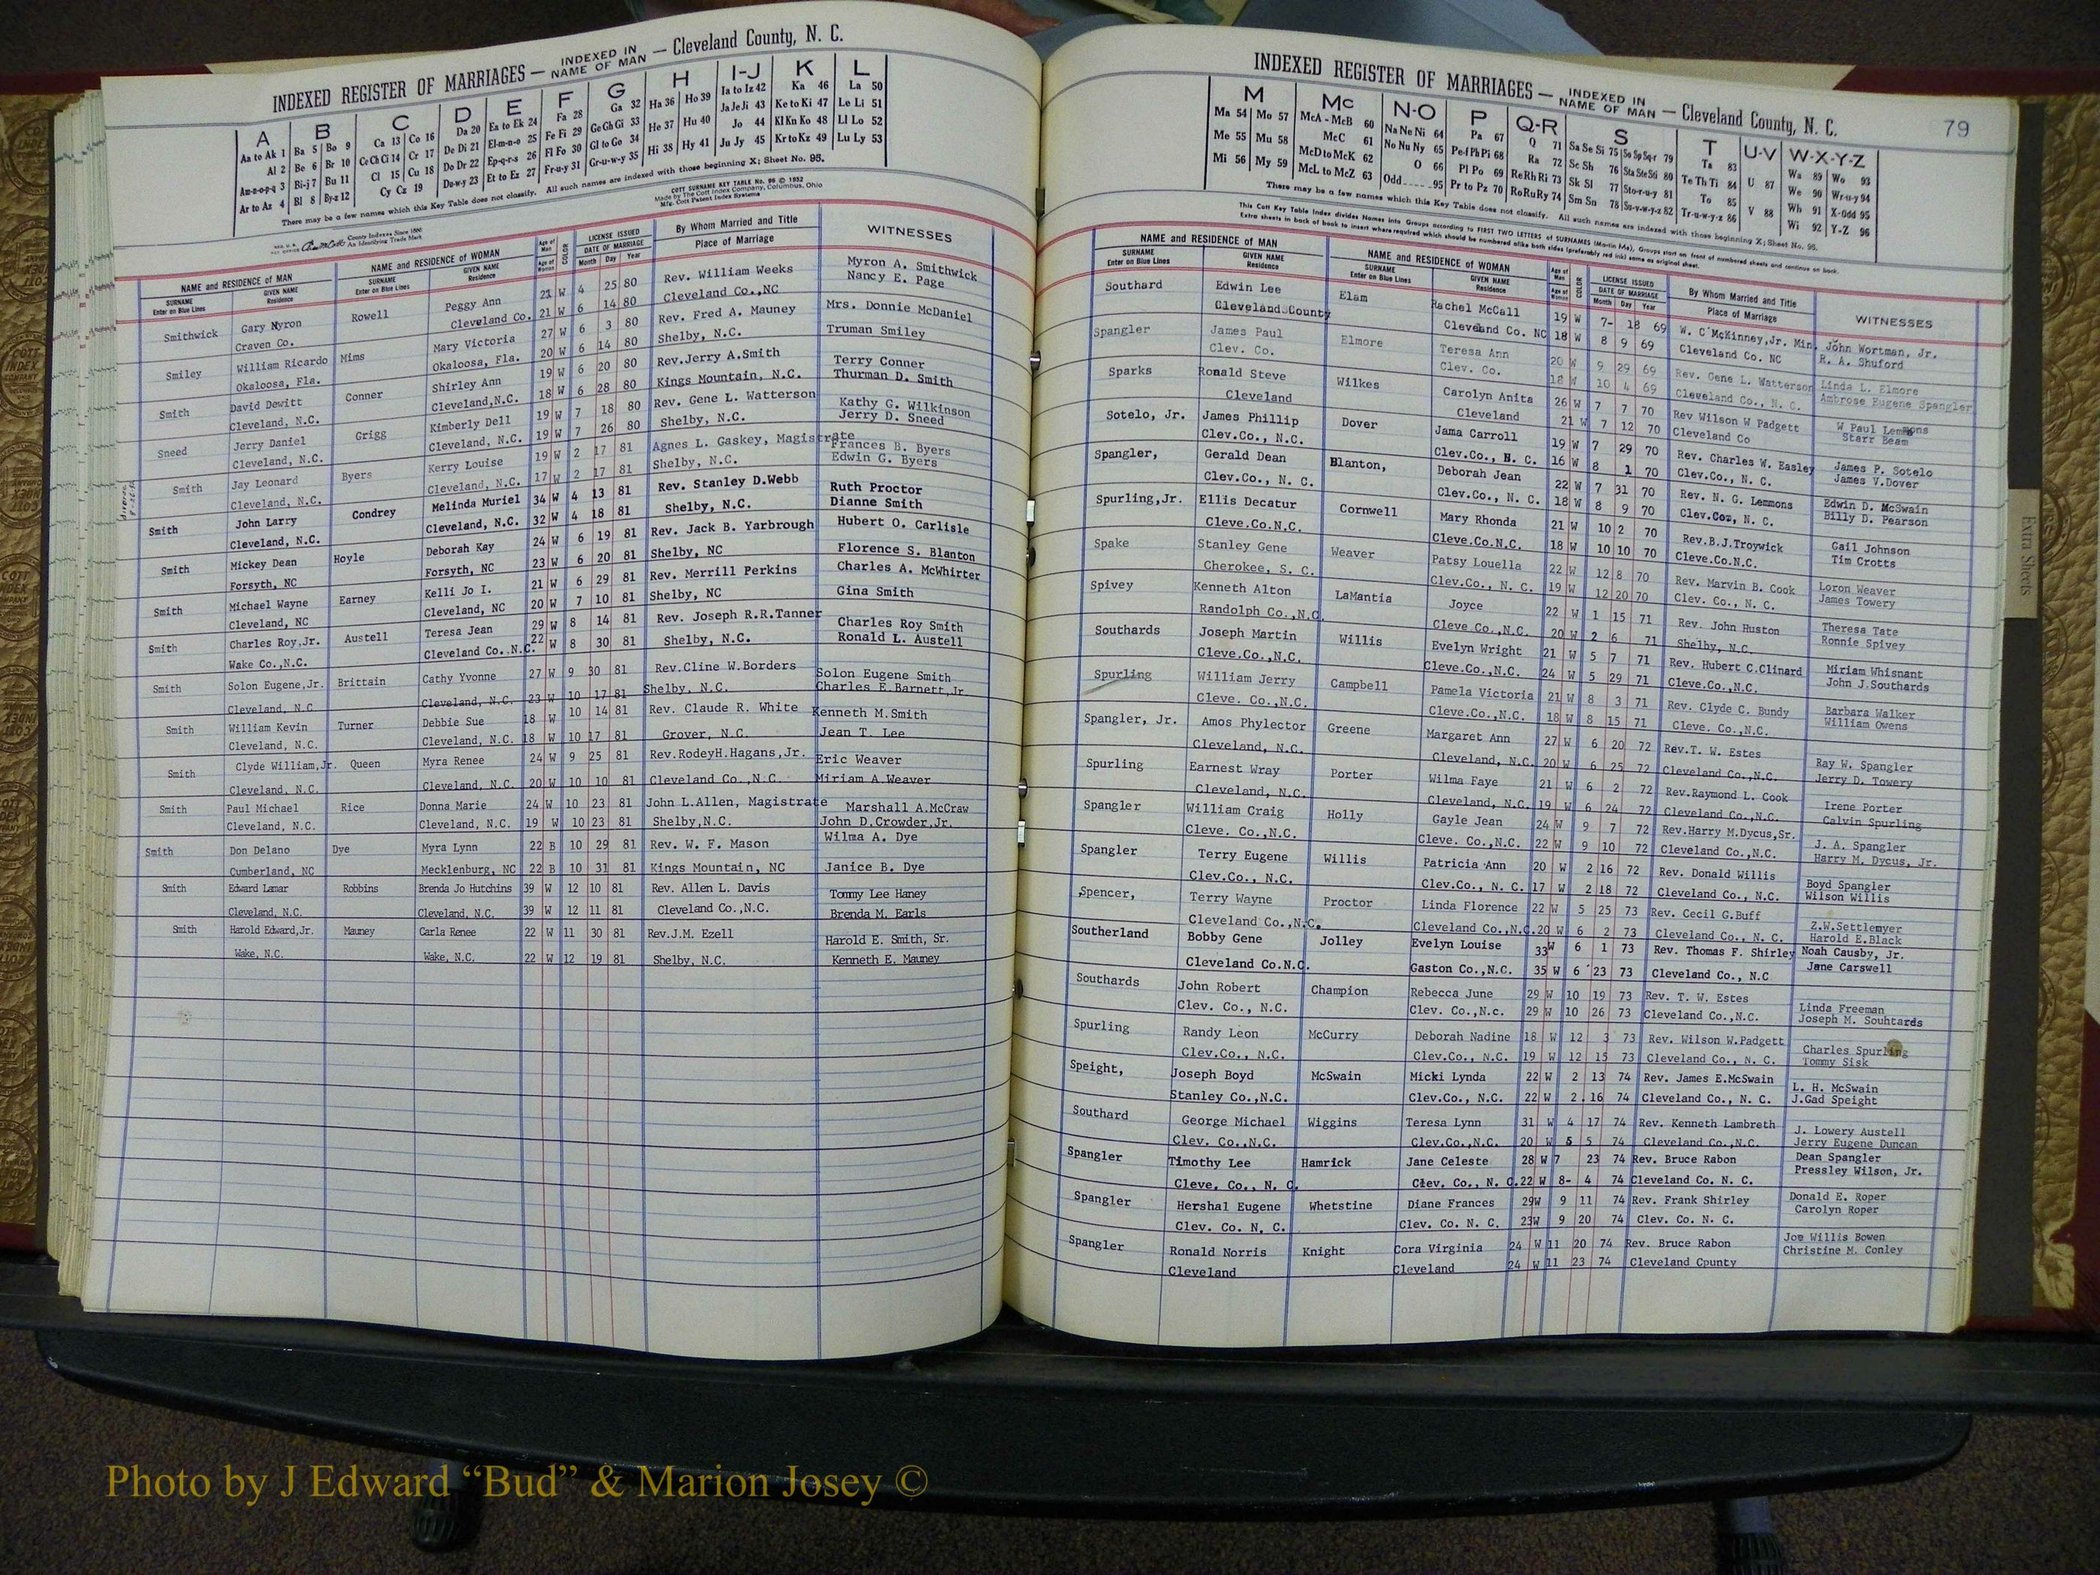 INDEXED REGISTER OF MARRIAGES — INDEXED IN NAME OF MAN — Cleveland County, N. C.
A B C D E F G H I-J K L
Aa to Ak 1 Ba 5 Bo 9 Ca 13 Co 16 Da 20 Ea to Ek 24 Fa 28 Ga 32 Ha 36 Ho 39 Ia to Iz 42 Ka 46 La 50
Al 2 Be 6 Br 10 Ce Ch Ci 14 Cr 17 De Di 21 El-m-n-o 25 Fe Fi 29 Ge Gh Gi 33 He 37 Hu 40 Ja Je Ji 43 Ke to Ki 47 Le Li 51
Am-n-o-p-q 3 Bi-j 7 Bu 11 Cl 15 Cu 18 Do Dr 22 Ep-q-r-s 26 Fl Fo 30 Gl to Go 34 Hi 38 Hy 41 Jo 44 Kl Kn Ko 48 Ll Lo 52
Ar to Az 4 Bl 8 By-z 12 Cy Cz 19 Du-w-y 23 Et to Ez 27 Fr-u-y 31 Gr-u-w-y 35 Ju Jy 45 Kr to Kz 49 Lu Ly 53
There may be a few names which this Key Table does not classify. All such names are indexed with those beginning X; Sheet No. 95.
COTT SURNAME KEY TABLE No. 96 © 1932
Made by The Cott Index Company, Columbus, Ohio
Mfg. Cott Patent Index Systems
County Indexes Since 1888
An Identifying Trade Mark
NAME and RESIDENCE OF MAN NAME and RESIDENCE OF WOMAN Age of Man Age of Woman COLOR LICENSE ISSUED DATE OF MARRIAGE Month Day Year By Whom Married and Title Place of Marriage WITNESSES
SURNAME Enter on Blue Lines GIVEN NAME Residence SURNAME Enter on Blue Lines GIVEN NAME Residence
Smithwick Gary Myron Rowell Peggy Ann 21 W 4 25 80 Rev. William Weeks Myron A. Smithwick
Craven Co. Cleveland Co. 21 W 6 14 80 Cleveland Co.,NC Nancy E. Page
Smiley William Ricardo Mims Mary Victoria 27 W 6 3 80 Rev. Fred A. Mauney Mrs. Donnie McDaniel
Okaloosa, Fla. Okaloosa, Fla. 20 W 6 14 80 Shelby, N.C. Truman Smiley
Smith David Dewitt Conner Shirley Ann 19 W 6 20 80 Rev.Jerry A.Smith Terry Conner
Cleveland, N.C. Cleveland,N.C. 18 W 6 28 80 Kings Mountain, N.C. Thurman D. Smith
Sneed Jerry Daniel Grigg Kimberly Dell 19 W 7 18 80 Rev. Gene L. Watterson Kathy G. Wilkinson
Cleveland, N.C. Cleveland, N.C. 19 W 7 26 80 Shelby, N.C. Jerry D. Sneed
Smith Jay Leonard Byers Kerry Louise 19 W 2 17 81 Agnes L. Gaskey, Magistrate Frances B. Byers
Cleveland, N.C. Cleveland, N.C. 17 W 2 17 81 Shelby, N.C. Edwin G. Byers
Smith John Larry Condrey Melinda Muriel 34 W 4 13 81 Rev. Stanley D.Webb Ruth Proctor
Cleveland, N.C. Cleveland, N.C. 32 W 4 18 81 Shelby, N.C. Dianne Smith
Smith Mickey Dean Hoyle Deborah Kay 24 W 6 19 81 Rev. Jack B. Yarbrough Hubert O. Carlisle
Forsyth, NC Forsyth, NC 23 W 6 20 81 Shelby, NC Florence S. Blanton
Smith Michael Wayne Earney Kelli Jo I. 21 W 6 29 81 Rev. Merrill Perkins Charles A. McWhirter
Cleveland, NC Cleveland, NC 20 W 7 10 81 Shelby, NC Gina Smith
Smith Charles Roy,Jr. Austell Teresa Jean 29 W 8 14 81 Rev. Joseph R.R.Tanner Charles Roy Smith
Wake Co.,N.C. Cleveland Co.,N.C. 22 W 8 30 81 Shelby, N.C. Ronald L. Austell
Smith Solon Eugene,Jr. Brittain Cathy Yvonne 27 W 9 30 81 Rev.Cline W.Borders Solon Eugene Smith
Cleveland, N.C. Cleveland, N.C. 23 W 10 17 81 Shelby, N.C. Charles E.Barnett,Jr
Smith William Kevin Turner Debbie Sue 18 W 10 14 81 Rev. Claude R. White Kenneth M.Smith
Cleveland, N.C. Cleveland, N.C. 18 W 10 17 81 Grover, N.C. Jean T. Lee
Smith Clyde William,Jr. Queen Myra Renee 24 W 9 25 81 Rev.RodeyH.Hagans,Jr. Eric Weaver
Cleveland, N.C. Cleveland, N.C. 20 W 10 10 81 Cleveland Co.,N.C. Miriam A.Weaver
Smith Paul Michael Rice Donna Marie 24 W 10 23 81 John L.Allen, Magistrate Marshall A.McCraw
Cleveland, N.C. Cleveland, N.C. 19 W 10 23 81 Shelby,N.C. John D.Crowder,Jr.
Smith Don Delano Dye Myra Lynn 22 B 10 29 81 Rev. W. F. Mason Wilma A. Dye
Cumberland, NC Mecklenburg, NC 22 B 10 31 81 Kings Mountain, NC Janice B. Dye
Smith Edward Lamar Robbins Brenda Jo Hutchins 39 W 12 10 81 Rev. Allen L. Davis Tommy Lee Haney
Cleveland, N.C. Cleveland, N.C. 39 W 12 11 81 Cleveland Co.,N.C. Brenda M. Earls
Smith Harold Edward,Jr. Mauney Carla Renee 22 W 11 30 81 Rev.J.M. Ezell Harold E. Smith, Sr.
Wake, N.C. Wake, N.C. 22 W 12 19 81 Shelby, N.C. Kenneth E. Mauney
INDEXED REGISTER OF MARRIAGES — INDEXED IN NAME OF MAN — Cleveland County, N. C. 79
M Mc N-O P Q-R S T U-V W-X-Y-Z
Ma 54 Mo 57 McA - McB 60 Na Ne Ni 64 Pa 67 Q 71 Sa Se Si 75 So Sp Sq-r 79 Ta 83 Wa 89 Wo 93
Me 55 Mu 58 McC 61 No Nu Ny 65 Pe-f Ph Pi 68 Ra 72 Sc Sh 76 Sta Ste Sti 80 Te Th Ti 84 U 87 We 90 Wr-u-y 94
Mi 56 My 59 McD to McK 62 O 66 Pl Po 69 Re Rh Ri 73 Sk Sl 77 Sto-r-u-y 81 To 85 V 88 Wh 91 X-Odd 95
McL to McZ 63 Odd 95 Pr to Pz 70 Ro Ru Ry 74 Sm Sn 78 Su-v-w-y-z 82 Tr-u-w-y-z 86 Wi 92 Y-Z 96
There may be a few names which this Key Table does not classify. All such names are indexed with those beginning X; Sheet No. 95.
This Cott Key Table Index divides Names into Groups according to FIRST TWO LETTERS of SURNAMES (Martin Ma), Groups start on front of numbered sheets and continue on back.
Extra sheets in back of book to insert where required which should be numbered alike both sides (preferably red ink) same as original sheet.
NAME and RESIDENCE OF MAN NAME and RESIDENCE OF WOMAN Age of Man Age of Woman COLOR LICENSE ISSUED DATE OF MARRIAGE Month Day Year By Whom Married and Title Place of Marriage WITNESSES
SURNAME Enter on Blue Lines GIVEN NAME Residence SURNAME Enter on Blue Lines GIVEN NAME Residence
Southard Edwin Lee Elam Rachel McCall 19 W 7- 18 69 W. C McKinney,Jr. Min. John Wortman, Jr.
Cleveland County Cleveland Co. NC 18 W 8 9 69 Cleveland Co. NC R. A. Shuford
Spangler James Paul Elmore Teresa Ann 20 W 9 29 69 Rev. Gene L. Watterson Linda L. Elmore
Clev. Co. Clev. Co. 18 W 10 4 69 Cleveland Co., N. C. Ambrose Eugene Spangler
Sparks Ronald Steve Wilkes Carolyn Anita 26 W 7 7 70 Rev Wilson W Padgett W Paul Lemmons
Cleveland Cleveland 21 W 7 12 70 Cleveland Co Starr Beam
Sotelo, Jr. James Phillip Dover Jama Carroll 19 W 7 29 70 Rev. Charles W. Easley James P. Sotelo
Clev.Co., N.C. Clev.Co., N. C. 16 W 8 1 70 Clev.Co., N. C. James V.Dover
Spangler, Gerald Dean Blanton, Deborah Jean 22 W 7 31 70 Rev. N. G. Lemmons Edwin D. McSwain
Clev.Co., N. C. Clev.Co., N. C. 18 W 8 9 70 Clev.Coo, N. C. Billy D. Pearson
Spurling,Jr. Ellis Decatur Cornwell Mary Rhonda 21 W 10 2 70 Rev.B.J.Troywick Gail Johnson
Cleve.Co.N.C. Cleve.Co.N.C. 18 W 10 10 70 Cleve.Co.N.C. Tim Crotts
Spake Stanley Gene Weaver Patsy Louella 22 W 12 8 70 Rev. Marvin B. Cook Loron Weaver
Cherokee, S. C. Clev.Co., N. C. 19 W 12 20 70 Clev. Co., N. C. James Towery
Spivey Kenneth Alton LaMantia Joyce 22 W 1 15 71 Rev. John Huston Theresa Tate
Randolph Co.,N.C. Cleve Co.,N.C. 20 W 2 6 71 Shelby, N.C. Ronnie Spivey
Southards Joseph Martin Willis Evelyn Wright 21 W 5 7 71 Rev. Hubert C.Clinard Miriam Whisnant
Cleve.Co.,N.C. Cleve.Co.,N.C. 24 W 5 29 71 Cleve.Co.,N.C. John J.Southards
Spurling William Jerry Campbell Pamela Victoria 21 W 8 3 71 Rev. Clyde C. Bundy Barbara Walker
Cleve. Co.,N.C. Cleve.Co.,N.C. 18 W 8 15 71 Cleve. Co.,N.C. William Owens
Spangler, Jr. Amos Phylector Greene Margaret Ann 27 W 6 20 72 Rev.T. W. Estes Ray W. Spangler
Cleveland, N.C. Cleveland, N.C. 20 W 6 25 72 Cleveland Co.,N.C. Jerry D. Towery
Spurling Earnest Wray Porter Wilma Faye 21 W 6 2 72 Rev.Raymond L. Cook Irene Porter
Cleveland, N.C. Cleveland, N.C. 19 W 6 24 72 Cleveland Co.,N.C. Calvin Spurling
Spangler William Craig Holly Gayle Jean 24 W 9 7 72 Rev.Harry M.Dycus,Sr. J. A. Spangler
Cleve. Co.,N.C. Cleve. Co.,N.C. 22 W 9 10 72 Cleveland Co.,N.C. Harry M. Dycus, Jr.
Spangler Terry Eugene Willis Patricia Ann 20 W 2 16 72 Rev. Donald Willis Boyd Spangler
Clev.Co., N.C. Clev.Co., N. C. 17 W 2 18 72 Cleveland Co., N.C. Wilson Willis
Spencer, Terry Wayne Proctor Linda Florence 22 W 5 25 73 Rev. Cecil G.Buff Z.W.Settlemyer
Cleveland Co.,N.C. Cleveland Co.,N.C. 20 W 6 2 73 Cleveland Co., N. C. Harold E.Black
Southerland Bobby Gene Jolley Evelyn Louise 33 W 6 1 73 Rev. Thomas F. Shirley Noah Causby, Jr.
Cleveland Co.N.C. Gaston Co.,N.C. 35 W 6 23 73 Cleveland Co., N.C Jane Carswell
Southards John Robert Champion Rebecca June 29 W 10 19 73 Rev. T. W. Estes Linda Freeman
Clev. Co., N.C. Clev. Co., N.c. 29 W 10 26 73 Cleveland Co.,N.C. Joseph M. Souhtards
Spurling Randy Leon McCurry Deborah Nadine 18 W 12 3 73 Rev. Wilson W.Padgett Charles Spurling
Clev.Co., N.C. Clev.Co., N.C. 19 W 12 15 73 Cleveland Co., N. C. Tommy Sisk
Speight, Joseph Boyd McSwain Micki Lynda 22 W 2 13 74 Rev. James E.McSwain L. H. McSwain
Stanley Co.,N.C. Clev.Co., N.C. 22 W 2 16 74 Cleveland Co., N. C. J.Gad Speight
Southard George Michael Wiggins Teresa Lynn 31 W 4 17 74 Rev. Kenneth Lambreth J. Lowery Austell
Clev. Co.,N.C. Clev.Co.,N.C. 20 W 5 5 74 Cleveland Co.,N.C. Jerry Eugene Duncan
Spangler Timothy Lee Hamrick Jane Celeste 28 W 7 23 74 Rev. Bruce Rabon Dean Spangler
Cleve. Co., N. C. Clev. Co., N. C. 22 W 8- 4 74 Cleveland Co. N. C. Pressley Wilson, Jr.
Spangler Hershal Eugene Whetstine Diane Frances 29W 9 11 74 Rev. Frank Shirley Donald E. Roper
Clev. Co. N. C. Clev. Co. N. C. 23W 9 20 74 Clev. Co. N. C. Carolyn Roper
Spangler Ronald Norris Knight Cora Virginia 24 W 11 20 74 Rev. Bruce Rabon Joe Willis Bowen
Cleveland Cleveland 24 W 11 23 74 Cleveland Cpunty Christine M. Conley
Extra Sheets
Photo by J Edward “Bud” & Marion Josey ©